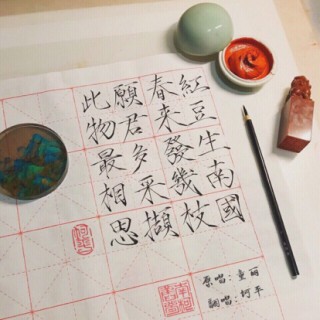 紅豆生南國
春來發幾枝
願君多采擷
此物最相思
原唱:童丽
翻唱:柯平